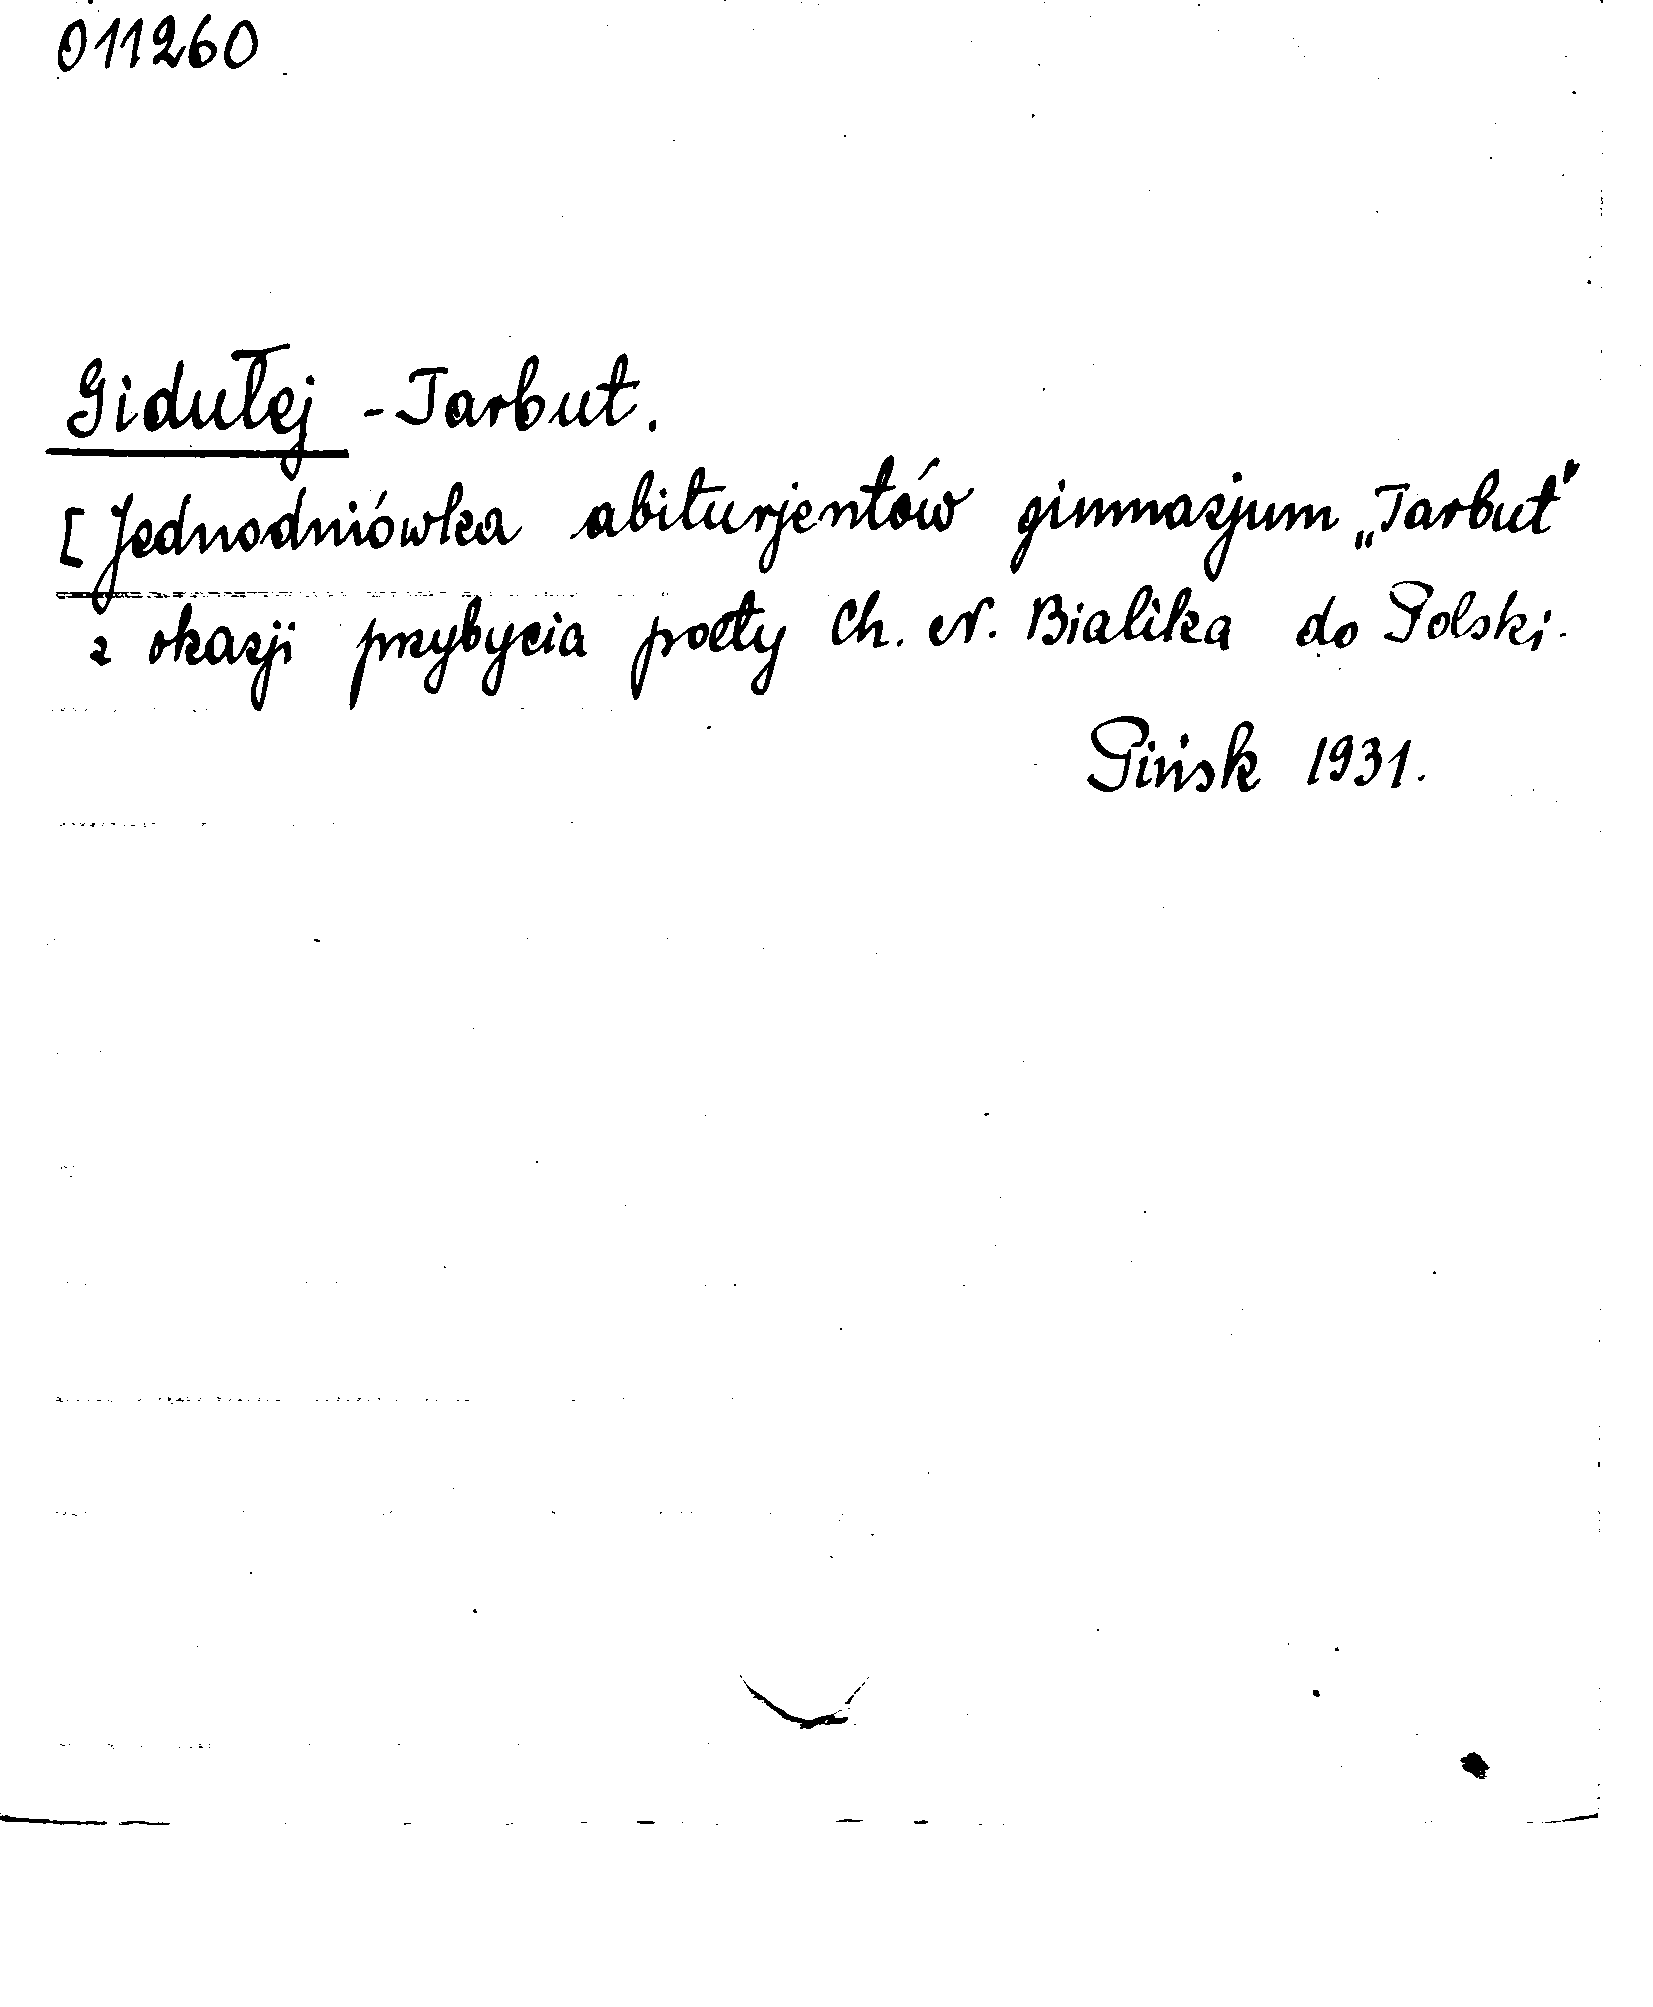 011260
Gidułej - Tarbut.
[Jednodniówka abiturjentów gimnazjum „Tarbut"
z okazji przybycia poety Ch. N. Bialika do Polski.
Pińsk 1931.